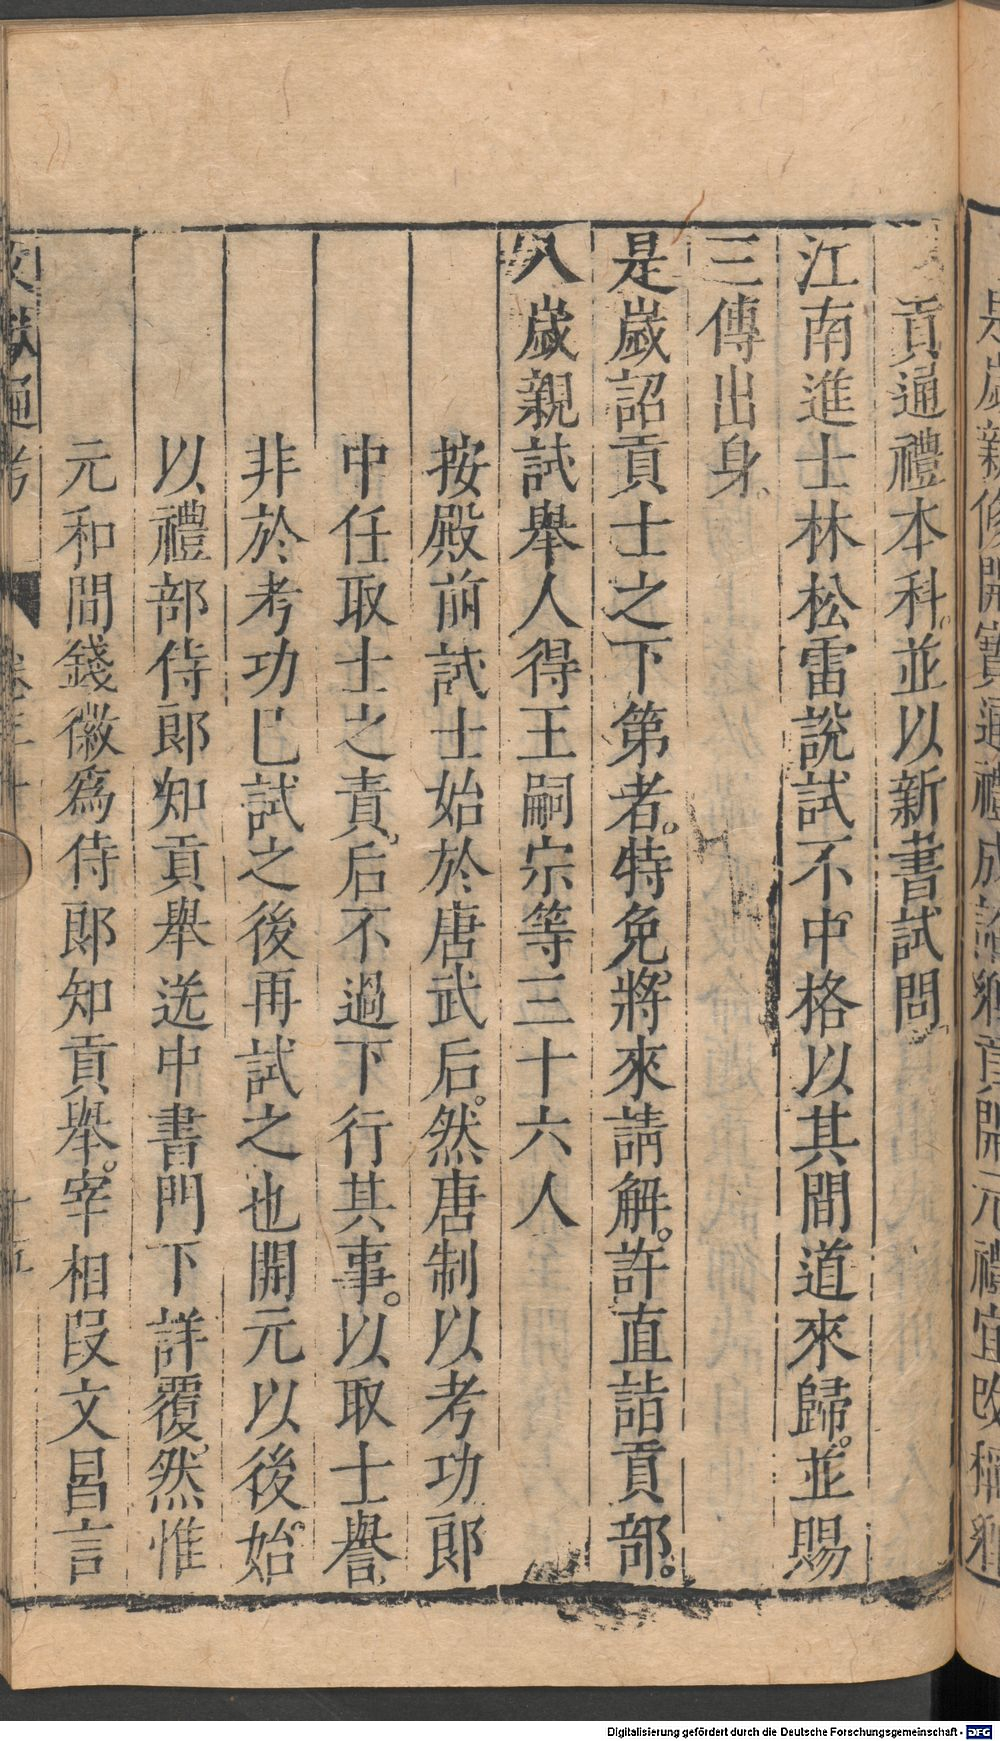 是歲新修開寶通禮成詔鄉貢開元禮宜改稱鄉
貢通禮本科。並以新書試問。
江南進士林松雷說試不中格以其間道來歸。並賜
三傳出身、
是歲詔貢士之下第者。特免。將來請解。許直詣貢部。
八歲親試舉人得王嗣宗等三十六人
按殿前試士始於唐武后。然唐制以考功郎
中任取士之責、后不過下行其事。以取士譽、
非於考功已試之後再試之也開元以後。始
以禮部侍郎知貢舉送中書門下詳覆。然惟
元和間錢徽爲侍郎知貢舉。宰相段文昌言
文獻通考 卷三十 十五
Digitalisierung gefördert durch die Deutsche Forschungsgemeinschaft - DFG